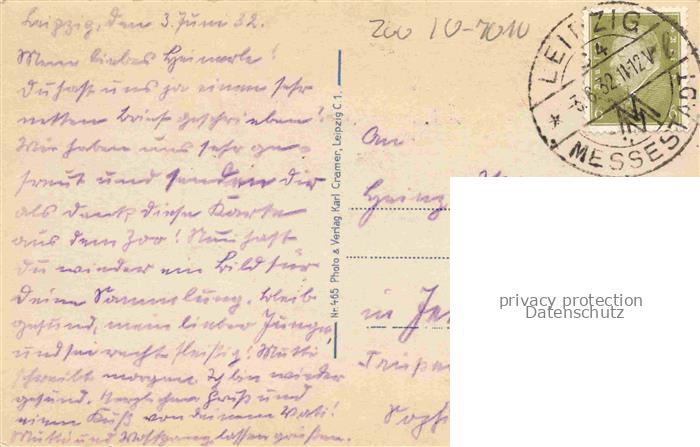 Leipzig, den 3. Juni 32.
Mein liebes Heinerle!
Du hast uns ja einen sehr
netten Brief geschrieben!
Wir haben uns sehr ge-
freut und senden Dir
als Dank diese Karte
aus dem Zoo! Nun hast
Du wieder ein Bild für
Deine Sammlung. Bleib
gesund, mein lieber Junge,
und sei recht fleißig! Mutti
schreibt morgen. Ich bin wieder
gesund. Herzlichen Gruß und
einen Kuß von deinem Vati!
Mutti und Wolfgang lassen grüßen.
Nr. 465 Photo & Verlag Karl Cramer, Leipzig C 1.
Zoo I 0-7010
LEIPZIG
4
-3.6.32.11-12V
* MESSESTADT
An
Heinz
in Je
Soph
privacy protection
Datenschutz